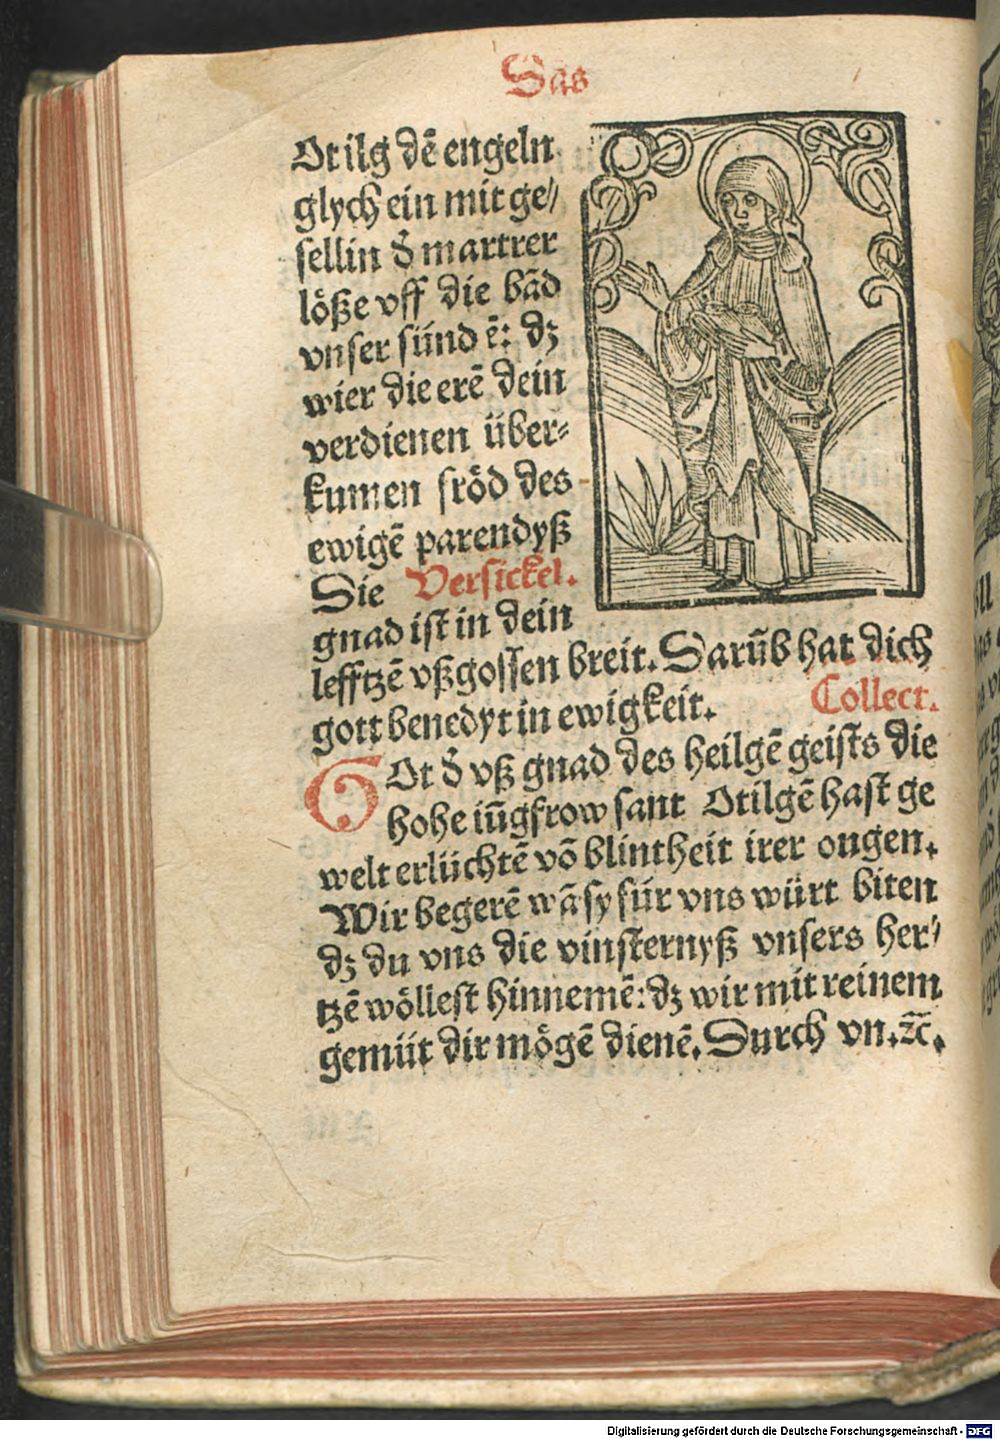 Das
Otilg dē engeln
glych ein mit ge/
sellin d̄ martrer
löße vff die bād
vnser sünd ē: dz
wier die erē dein
verdienen über⸗
kumen fröd des
ewigē parendyß
Die Versickel.
gnad ist in dein
lefftzē vßgossen breit. Darūb hat dich
gott benedyt in ewigkeit. Collect.
GOt d̄ vß gnad des heilgē geists die
hohe iūgfrow sant Otilgē hast ge
welt erlüchtē vō blintheit irer ougen.
Wir begerē wā sy für vns würt biten
dz du vns die vinsternyß vnsers her/
tzē wöllest hinnemē: dz wir mit reinem
gemüt dir mögē dienē. Durch vn. ⁊c̄.
Digitalisierung gefördert durch die Deutsche Forschungsgemeinschaft - DFG